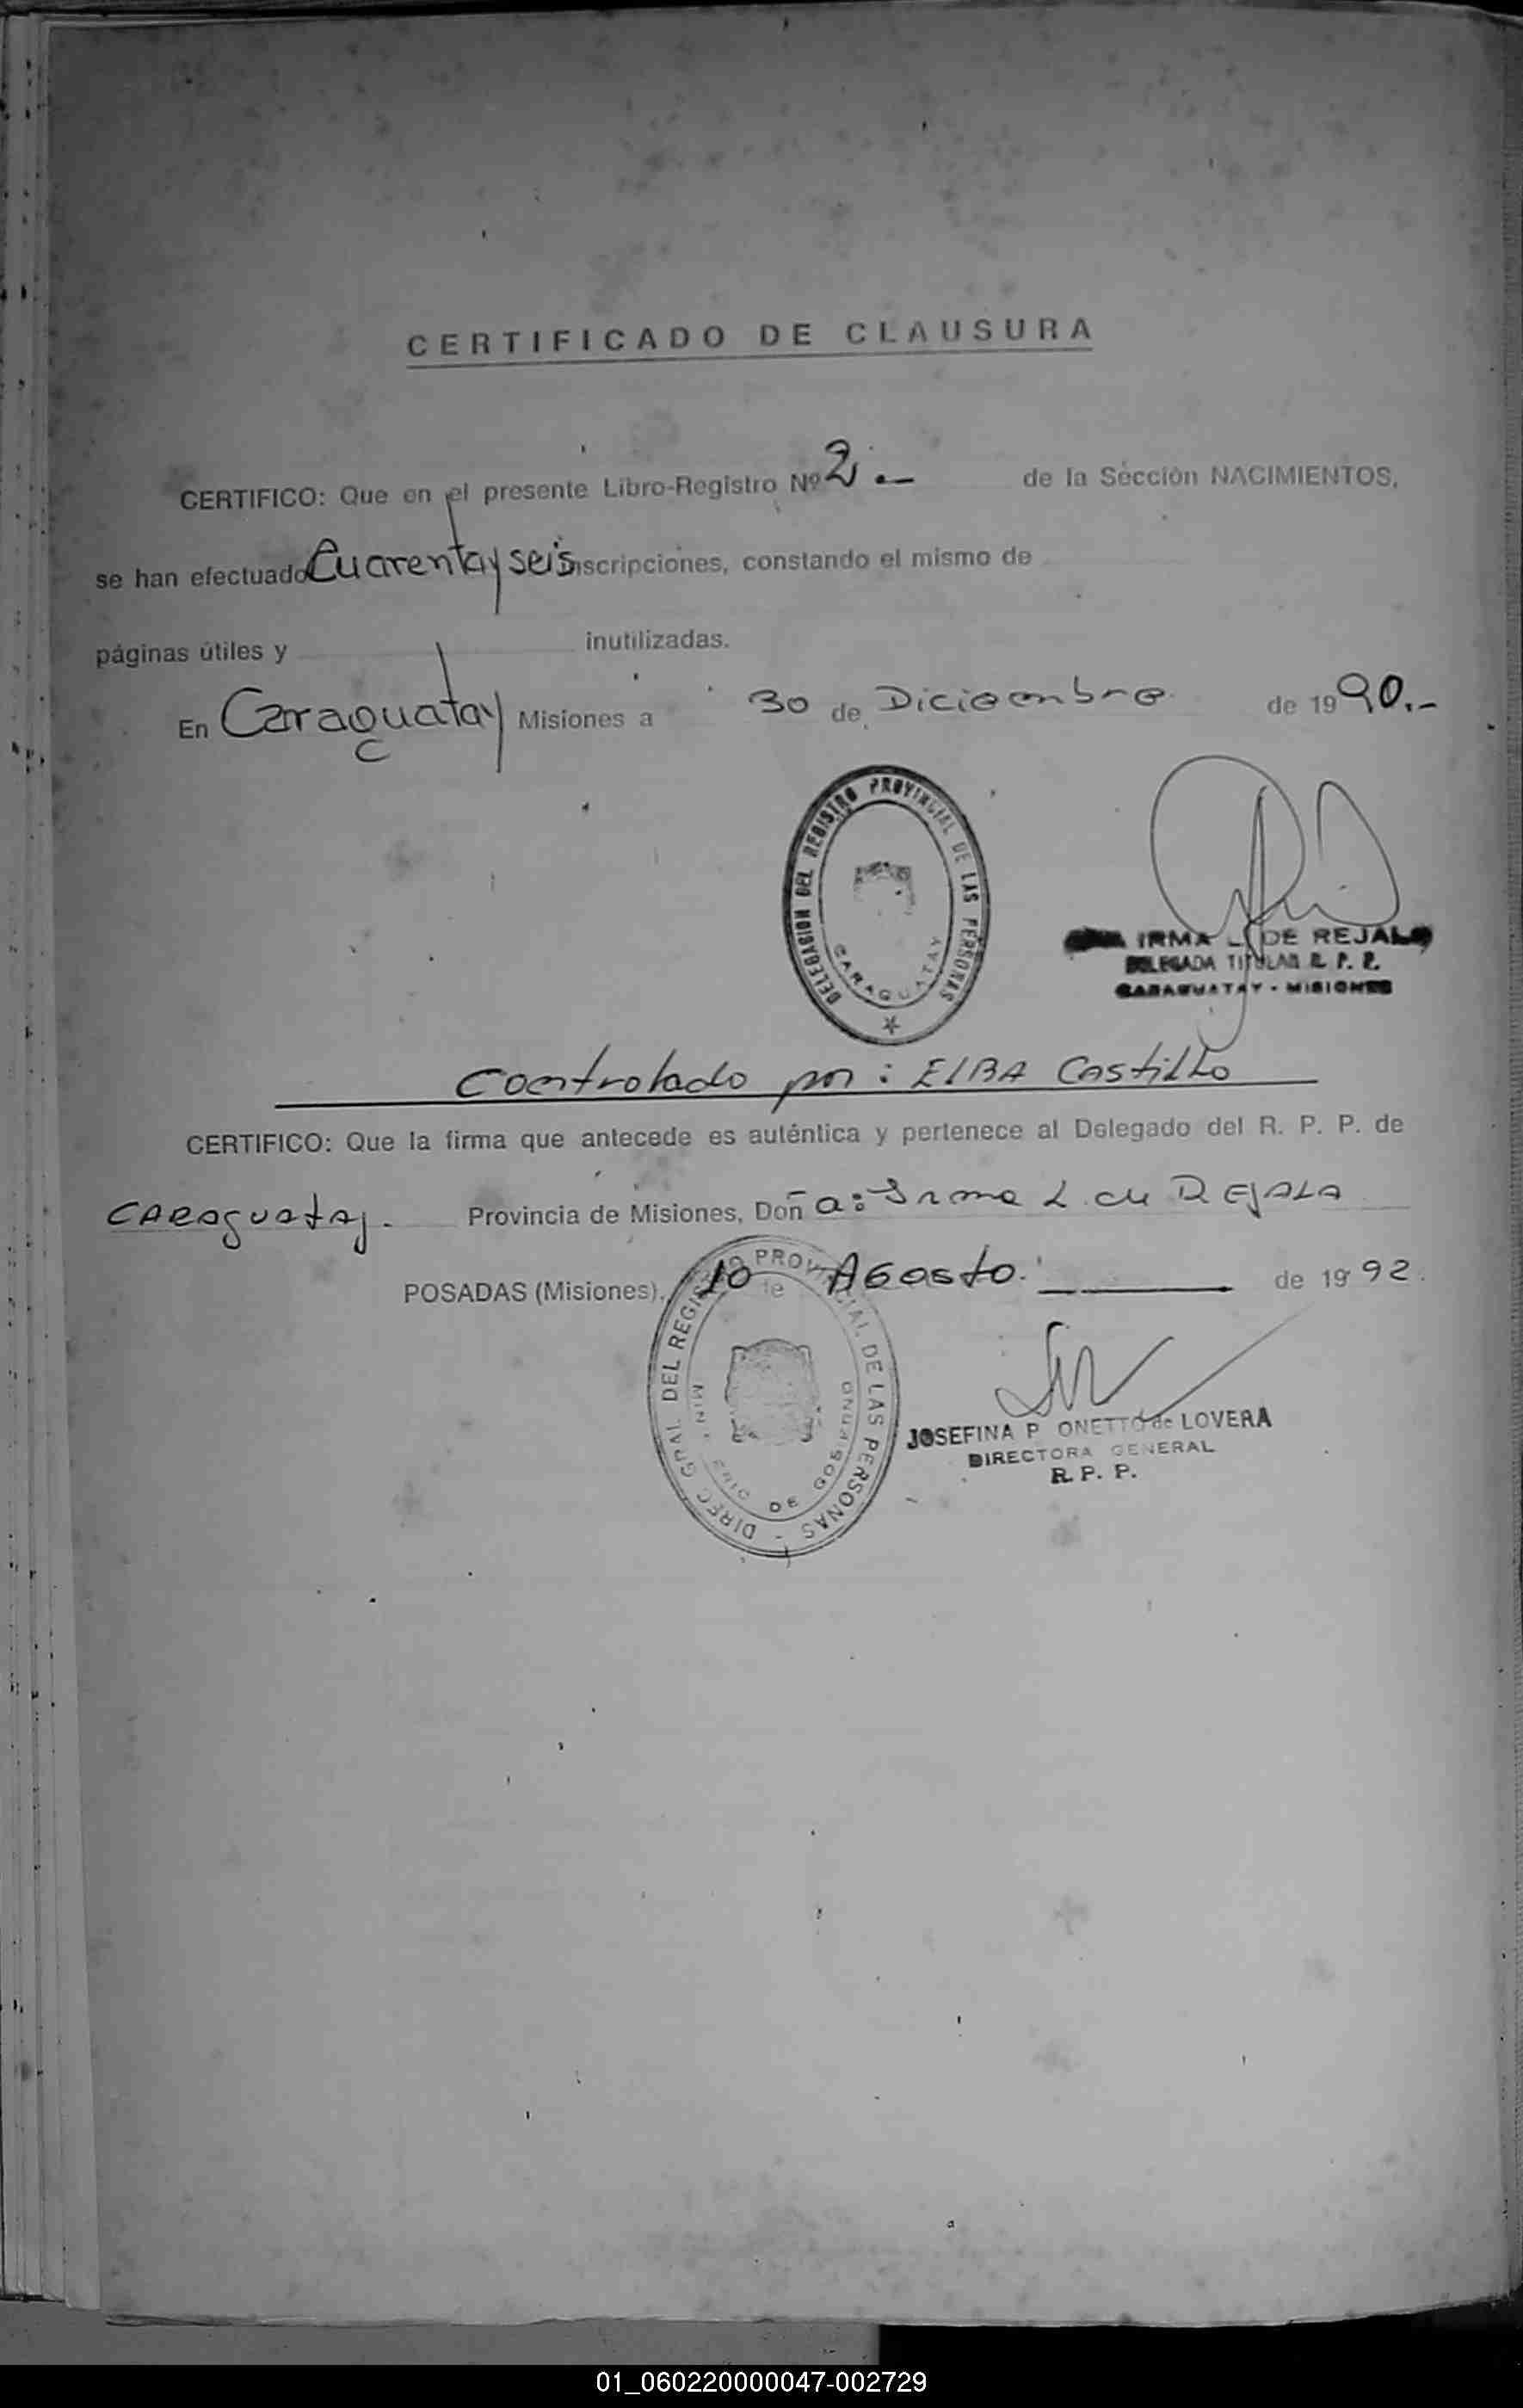 CERTIFICADO DE CLAUSURA
CERTIFICO: Que en el presente Libro-Registro Nº 2.- de la Sección NACIMIENTOS,
se han efectuado Cuarenta y seis inscripciones, constando el mismo de
páginas útiles y inutilizadas.
En Caraguatay Misiones a 30 de Diciembre de 1990.-
DELEGACION DEL REGISTRO PROVINCIAL DE LAS PERSONAS
CARAGUATAY
IRMA L. DE REJALA
DELEGADA TITULAR R. P. P.
CARAGUATAY - MISIONES
Controlado por: ELBA Castillo
CERTIFICO: Que la firma que antecede es auténtica y pertenece al Delegado del R. P. P. de
CARAGUATAy. Provincia de Misiones, Doña: Irma L. de REJALA
POSADAS (Misiones), 10 de AGosto. de 1992.
DIREC GRAL DEL REGISTRO PROVINCIAL DE LAS PERSONAS -
MINISTERIO DE GOBIERNO
JOSEFINA P ONETTO de LOVERA
DIRECTORA GENERAL
R. P. P.
01_060220000047-002729